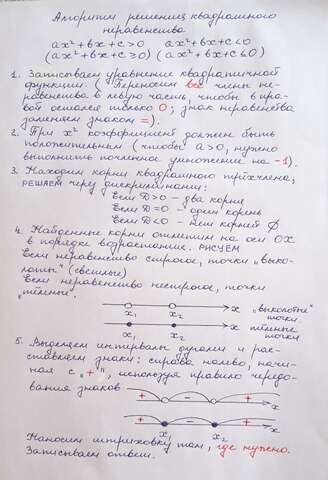 Алгоритм решения квадратного
неравенства
ax²+bx+c>0 ax²+bx+c<0
(ax²+bx+c≥0) (ax²+bx+c≤0)
1. Записываем уравнение квадратичной
функции. (Переносим все члены не-
равенства в левую часть, чтобы в пра-
вой остался только 0; знак неравенства
заменяем знаком =).
2. При x² коэффициент должен быть
положительным (чтобы a>0, нужно
выполнить почленное умножение на -1).
3. Находим корни квадратного трёхчлена,
РЕШАЕМ через дискриминант:
Если D>0 – два корня
Если D=0 – один корень
Если D<0 – нет корней ∅
4. Найденные корни отметим на оси OX
в порядке возрастания. РИСУЕМ
Если неравенство строгое, точки „выко-
лоты" (светлые)
Если неравенство нестрогое, точки
„тёмные".
x₁ x₂ x „выколотые" точки
x₁ x₂ x тёмные точки
5. Выделяем интервалы дугами и рас-
ставляем знаки: справа налево, начи-
ная с „+", используя правило чередо-
вания знаков
+ - + x
+ x₁ - x₂ + x
Наносим штриховку там, где нужно.
Записываем ответ.